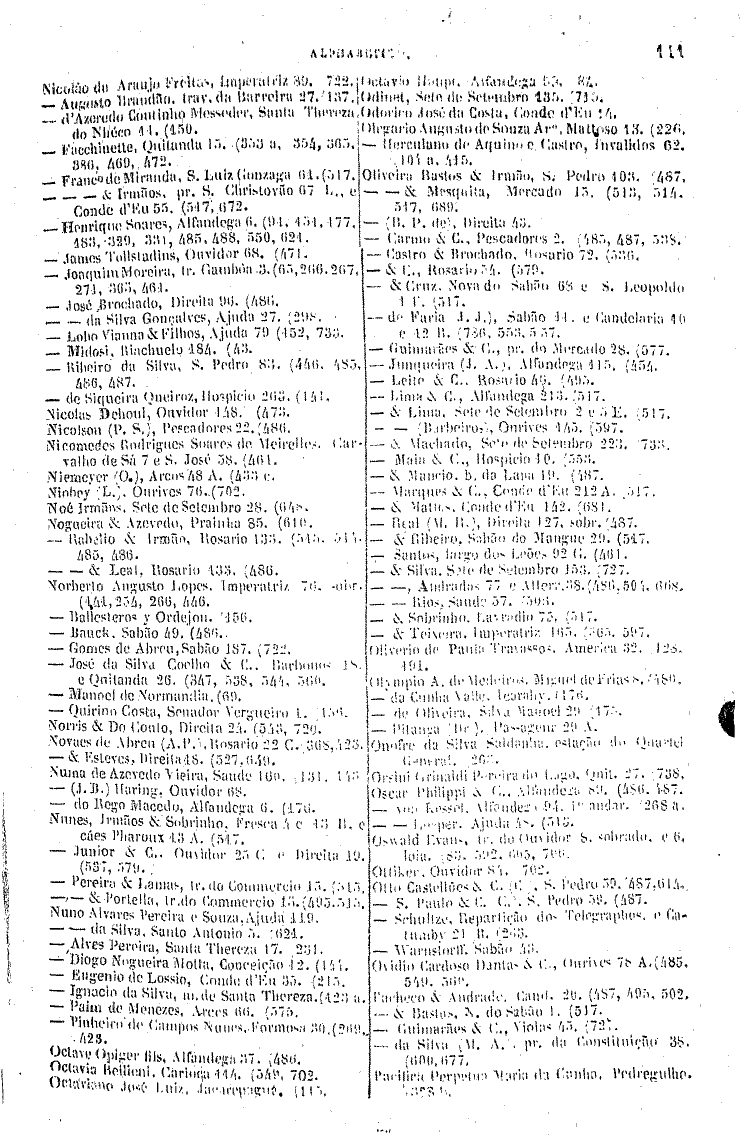 ALPHABETICO.
111
Nicoláo de Araujo Freitas, Imperatriz 89. 722.
— Augusto Brandão, trav. da Barreira 27. 137.
— d'Azeredo Coutinho Messeder, Santa Thereza
do Nheco 11. (450.
— Facchinette, Quitanda 15. (353 a 354, 365,
386, 469, 472.
— Franco de Miranda, S. Luiz Gonzaga 64. (517.
— — — & Irmãos, pr. S. Christovão 67 L, e
Conde d'Eu 55. (547, 672.
— Henrique Soares, Alfandega 6. (94, 454, 477,
483, 329, 331, 485, 488, 550, 624.
— James Tollstadius, Ouvidor 68. (471.
— Joaquim Moreira, tr. Gambôa 3. (65, 266, 267,
271, 365, 461.
— José Brochado, Direita 96. (486.
— — da Silva Gonçalves, Ajuda 27. (298.
— Lobo Vianna & Filhos, Ajuda 79 (452, 733.
— Midosi, Riachuelo 184. (43.
— Ribeiro da Silva, S. Pedro 83. (446, 485,
486, 487.
— de Siqueira Queiroz, Hospicio 263. (141.
Nicolas Dehoul, Ouvidor 148. (473.
Nicolson (P. S.), Pescadores 22. (486.
Nicomedes Rodrigues Soares de Meirelles, Car-
valho de Sá 7 e S. José 58. (461.
Niemeyer (O.), Arcos 48 A. (433 c.
Niobey (L.), Ourives 76. (702.
Noé Irmãos, Sete de Setembro 28. (648.
Nogueira & Azevedo, Prainha 85. (610.
— Rabello & Irmão, Rosario 133.
485, 486.
— — & Leal, Rosario 133. (486.
Norberto Augusto Lopes, Imperatriz 76, sobr.
(144, 254, 266, 446.
— Ballesteros y Ordejon. 456.
— Bauck, Sabão 49. (486.
— Gomes de Abreu, Sabão 187. (722.
— José da Silva Coelho & C., Barbonos 18
e Quitanda 26. (347, 538, 544, 560.
— Manoel de Normandia. (69.
— Quirino Costa, Senador Vergueiro 1. (456.
Norris & Do Couto, Direita 24. (543, 720.
Novaes de Abreu (A.P.), Rosario 22 C. 368, 423.
— & Esteves, Direita 48. (527, 649.
Numa de Azevedo Vieira, Saude 160. (131, 143
— (J. B.) Haring, Ouvidor 68.
— do Rego Macedo, Alfandega 6. (476.
Nunes, Irmãos & Sobrinho, Fresca 4 e 13 B, e
cáes Pharoux 43 A. (547.
— Junior & C., Ouvidor 25 C e Direita 19.
(537, 579.
— Pereira & Lamas, tr. do Commercio 15. (515,
— — & Portella, tr. do Commercio 15. (495, 515,
Nuno Alvares Pereira e Souza, Ajuda 119.
— — da Silva, Santo Antonio 5. (624.
— Alves Pereira, Santa Thereza 17. 231.
— Diogo Nogueira Motta, Conceição 12. (144.
— Eugenio de Lossio, Conde d'Eu 35. (215.
— Ignacio da Silva, m. de Santa Thereza. (423 a.
— Paim de Menezes, Arcos 66. (575.
— Pinheiro de Campos Nunes, Formosa 30. (269,
423.
Octave Opiger fils, Alfandega 37. (486.
Octavia Bellieni, Carioca 114. (549, 702.
Octaviano José Luiz, Jacarepaguá. (115.
Octavio Haupt, Alfandega 55. 84.
Odinet, Sete de Setembro 135. (715.
Odorico José da Costa, Conde d'Eu 14.
Olegario Augusto de Souza Ar°, Mattoso 13. (226,
— Herculano de Aquino e Castro, Invalidos 62.
104 a, 415.
Oliveira Bastos & Irmão, S. Pedro 103. (487,
— — & Mesquita, Mercado 15. (513, 514,
517, 689.
— (B. P. de), Direita 43.
— Carmo & C., Pescadores 2. (485, 487, 538.
— Castro & Brochado, Rosario 72. (536.
— & C., Rosario 54. (579.
— & Cruz, Nova do Sabão 68 e S. Leopoldo
1 F. (517.
— de Faria (J. J.), Sabão 44, e Candelaria 10
e 12 B. (736, 553, 557.
— Guimarães & C., pr. do Mercado 28. (577.
— Junqueira (J. A.), Alfandega 115. (454.
— Leite & C., Rosario 46. (495.
— Lima & C., Alfandega 213. (517.
— & Lima, Sete de Setembro 2 e 5 E. (517.
— — (Barbeiro), Ourives 145. (597.
— & Machado, Sete de Setembro 223. (733.
— Maia & C., Hospicio 10. (553.
— & Mancio, b. da Lapa 19. (487.
— Marques & C., Conde d'Eu 212 A. (517.
— & Mattos, Conde d'Eu 142. (681.
— Real (M. B.), Direita 127, sobr. (487.
— & Ribeiro, Sabão do Mangue 29. (547.
— Santos, largo dos Leões 92 G. (461.
— & Silva, Sete de Setembro 153. (727.
— —, Andradas 77 e Alferr. 38. (486, 504, 668.
— — Rios, Saude 57. (503.
— & Sobrinho, Lavradio 75. (517.
— & Teixeira, Imperatriz 165. (565, 597.
Oliverio de Paula Travassos, America 32. 128,
491.
Olympio A. de Medeiros, Miguel de Frias 8. (480.
— da Cunha Valle, Icarahy. (176.
— de Oliveira, Silva Manoel 29 (175.
— Pitanga (Dr.), Passagem 29 A.
Onofre da Silva Saldanha, estação do Quartel
General. 263.
Orsini Grimaldi Pereira do Lago, Quit. 27. (738,
Oscar Philippi & C., Alfandega 89. (486, 487.
— von Kessel, Alfandega 94, 1° andar. (268 a.
— — Leeper, Ajuda 48. (513.
Oswald Evans, tr. do Ouvidor 8, sobrado, e 6,
loja. (83, 592, 605, 706.
Ottiker, Ouvidor 84. 702.
Otto Castellões & C. (C.), S. Pedro 59. (487, 614.
— S. Paulo & C. C., S. Pedro 58. (487.
— Schultze, Repartição dos Telegraphos, e Ca-
tumby 21 B. (263.
— Warnstorff, Sabão 43.
Ovidio Cardoso Dantas & C., Ourives 78 A. (485,
549, 560.
Pacheco & Andrade, Cand. 20. (487, 495, 502,
— & Bastos, N. do Sabão 1. (517.
— Guimarães & C., Violas 45. (727.
— da Silva (M. A.), pr. da Constituição 38.
(600, 677.
Pacifica Perpetua Maria da Cunha, Pedregulho.